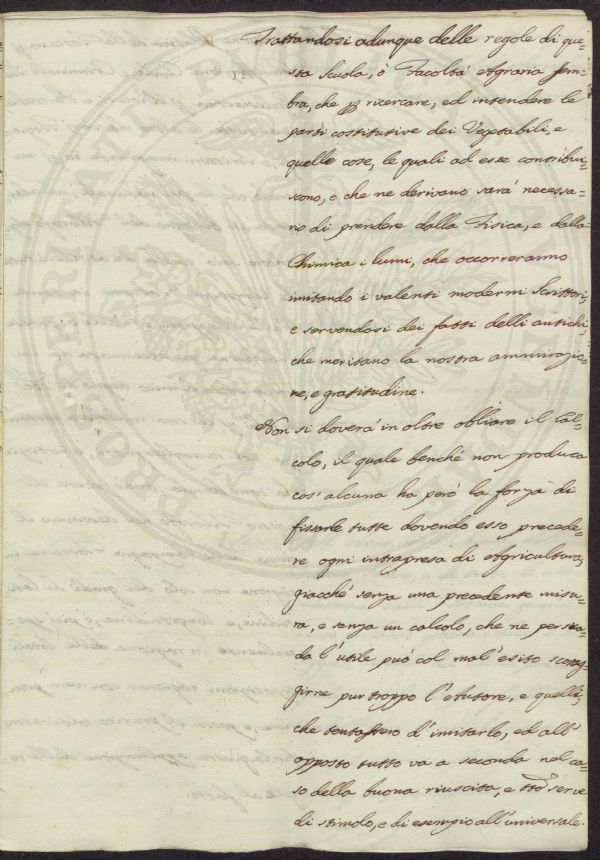 Trattandosi adunque delle regole di que=
sta Scuola, ò Facoltá Agraria sem=
bra, che p ricercare, ed intendere le
parti costitutive dei Vegetabili, e
quelle cose, le quali ad esse contribui=
scono, e che ne derivano sará necessa=
rio di prendere dalla Fisica, e dalla
Chimica i lumi, che occorreranno
imitando i valenti moderni Scrittori,
e servendosi dei fatti delli antichi,
che meritano la nostra ammirazio
ne, e gratitudine.
Non si doverá in oltre obliare il Cal=
colo, il quale benché non produca
cos' alcuna ha peró la forza di
fissarle tutte dovendo esso precede=
re ogni intrapresa di Agricultura,
giacché senza una precedente misu=
ra, e senza un calcolo, che ne persua=
da l'utile puó col mal'esito scorag=
girne pur troppo l'Autore, e quelli,
che tentassero d'imitarlo, ed all'
opposto tutto va a seconda nel ca=
so della buona riuscita, e serve
di stimolo, e di esempio all'universale.
PROSPERITATI PUBLICAE AUGENDAE